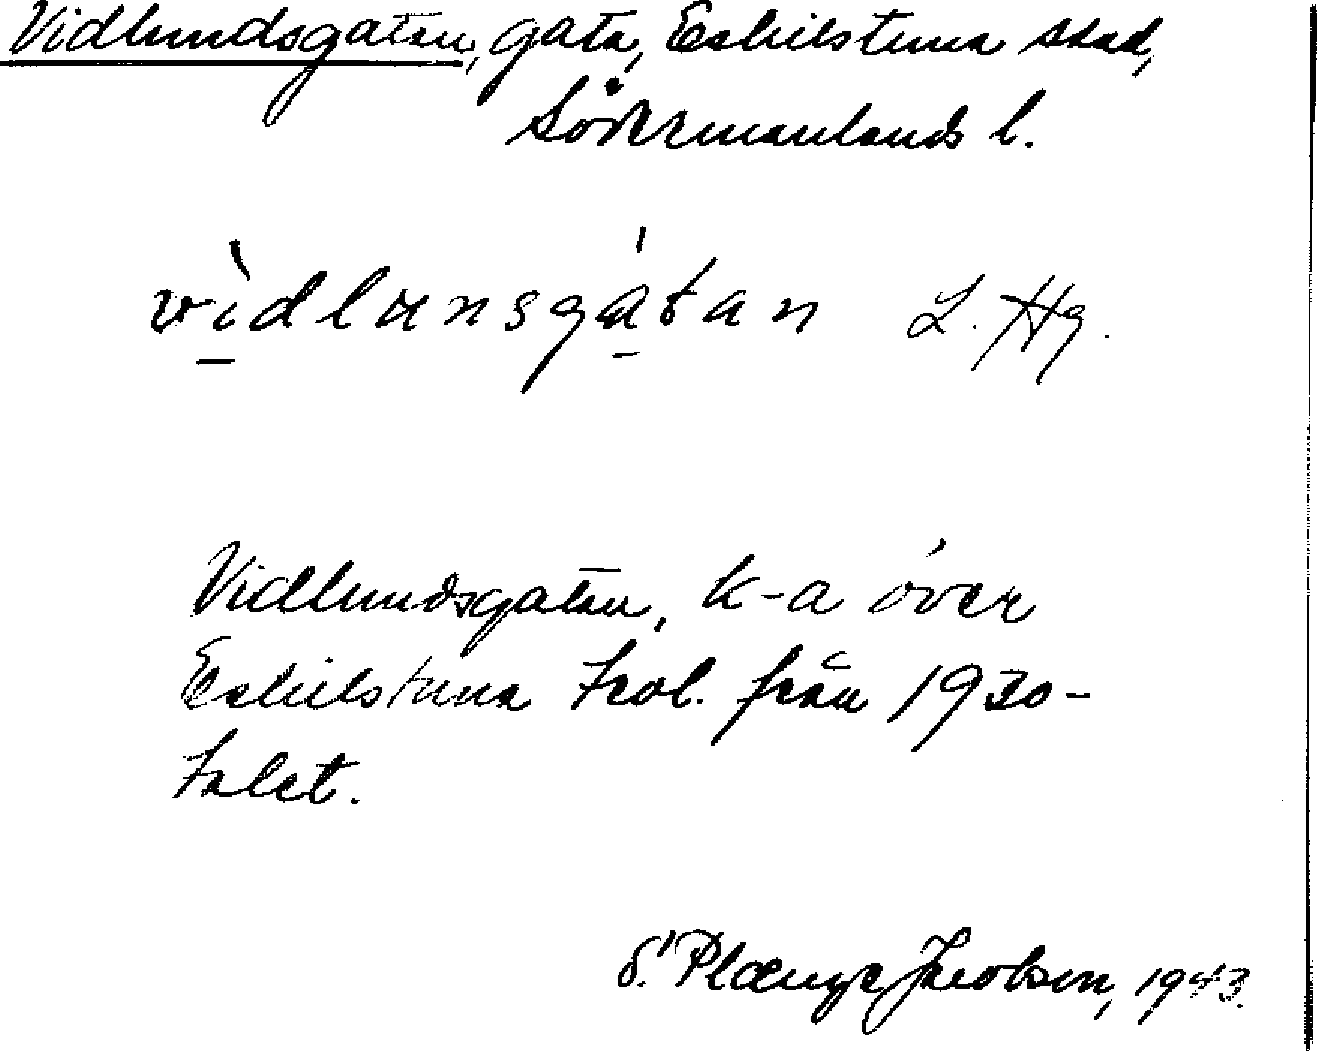 Vidlundsgatan, gata, Eskilstuna stad,
Södermanlands l.
vìdlunsgátan L. Hg.
Vidlundsgatan, k-a över
Eskilstuna trol. från 1930-
talet.
S. Plænge Jacobson, 1943.